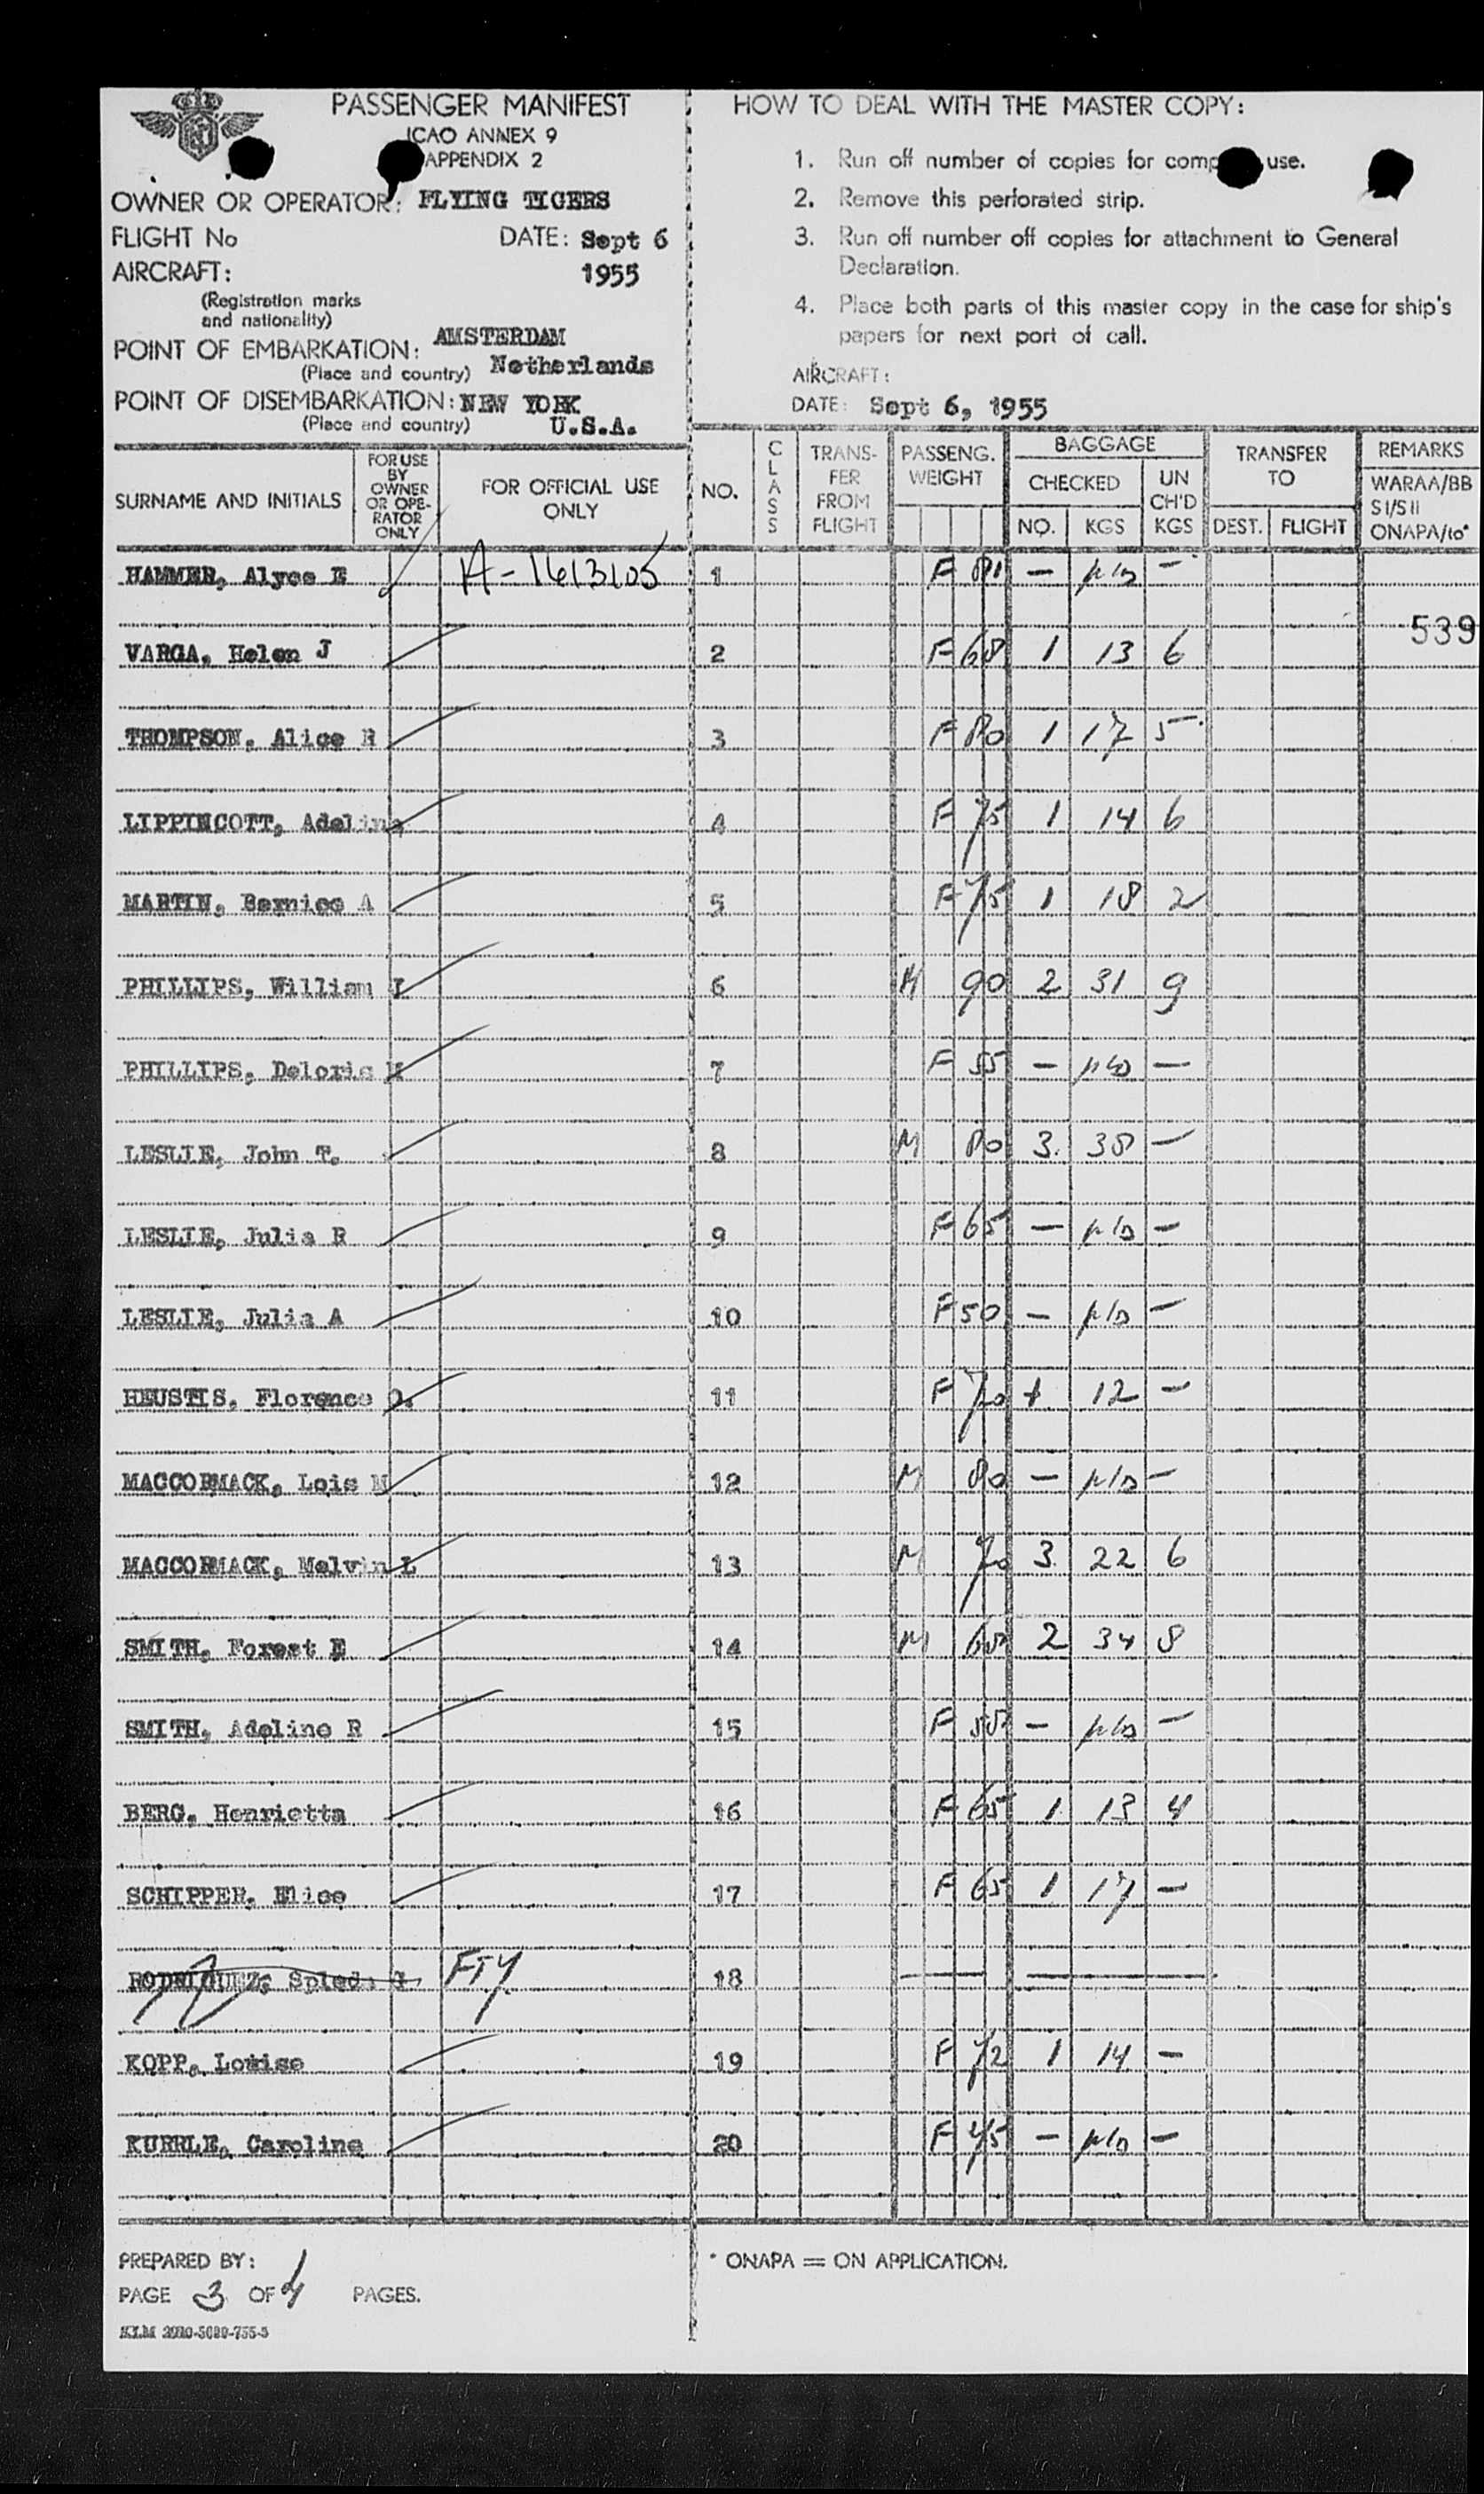 PASSENGER MANIFEST
ICAO ANNEX 9
APPENDIX 2
OWNER OR OPERATOR: FLYING TIGERS
FLIGHT No DATE: Sept 6
AIRCRAFT: 1955
(Registration marks
and nationality)
POINT OF EMBARKATION: AMSTERDAM
(Place and country) Netherlands
POINT OF DISEMBARKATION: NEW YORK
(Place and country) U.S.A.
HOW TO DEAL WITH THE MASTER COPY:
1. Run off number of copies for comp use.
2. Remove this perforated strip.
3. Run off number off copies for attachment to General
Declaration.
4. Place both parts of this master copy in the case for ship's
papers for next port of call.
AIRCRAFT:
DATE: Sept 6, 1955
SURNAME AND INITIALS FOR USE BY OWNER OR OPE- RATOR ONLY FOR OFFICIAL USE ONLY NO. CLASS TRANS- FER FROM FLIGHT PASSENG. WEIGHT BAGGAGE CHECKED NO. KGS UN CH'D KGS TRANSFER TO DEST. FLIGHT REMARKS WARAA/BB SI/SII ONAPA/to*
HAMMER, Alyce E A-1613105 1 F 81 — —
539
VARGA, Helen J 2 F 68 1 13 6
THOMPSON, Alice R 3 F 80 1 17 5
LIPPINCOTT, Adeline 4 F 75 1 14 6
MARTIN, Bernice A 5 F 75 1 18 2
PHILLIPS, William L 6 M 90 2 31 9
PHILLIPS, Deloris M 7 F 55 — —
LESLIE, John T. 8 M 80 3 38 —
LESLIE, Julia R 9 F 65 — —
LESLIE, Julia A 10 F 50 — —
HEUSTIS, Florence O. 11 F 70 1 12 —
MACCORMACK, Lois M 12 M 80 — —
MACCORMACK, Melvin L 13 M 70 3 22 6
SMITH, Forest E 14 M 68 2 34 8
SMITH, Adeline R 15 F 58 — —
BERG, Henrietta 16 F 65 1 13 4
SCHIPPER, Elice 17 F 65 1 17 —
RODRIGUEZ, 18
KOPP, Louise 19 F 72 1 14 —
KURRLE, Caroline 20 F 45 — —
PREPARED BY:
PAGE 3 OF 4 PAGES.
* ONAPA = ON APPLICATION.